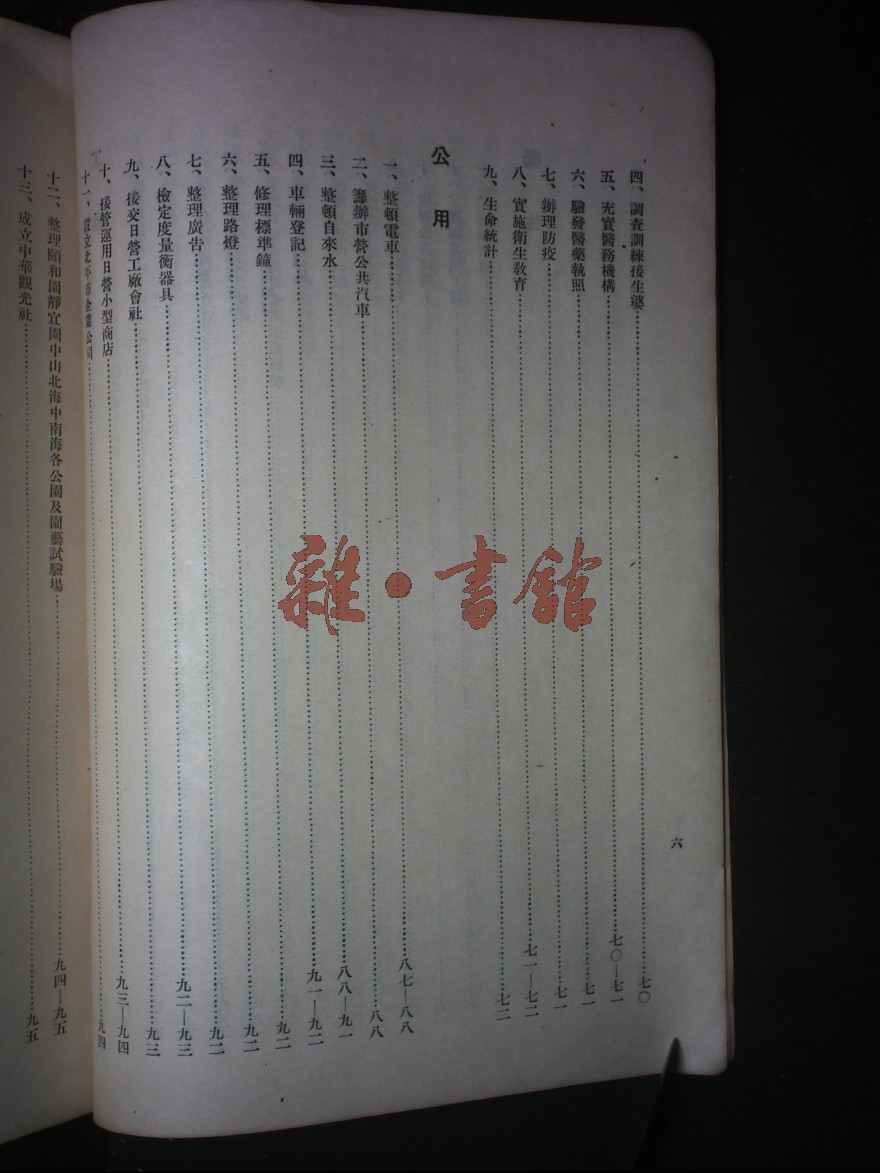 四、調查訓練接生婆……七〇
五、充實醫務機構……七〇—七一
六、驗發醫藥執照……七一
七、辦理防疫……七一
八、實施衛生教育……七一—七二
九、生命統計……七二
公用
一、整頓電車……八七—八八
二、籌辦市營公共汽車……八八
三、整頓自來水……八八—九一
四、車輛登記……九一—九二
五、修理標準鐘……九二
六、整理路燈……九二
七、整理廣告……九二
八、檢定度量衡器具……九二—九三
九、接交日營工廠會社……九三
十、接管運用日營小型商店……九三—九四
十一、設立北平市企業公司……九四
十二、整理頤和園靜宜園中山北海中南海各公園及園藝試驗場……九四—九五
十三、成立中華觀光社……九五
六
雜·書館